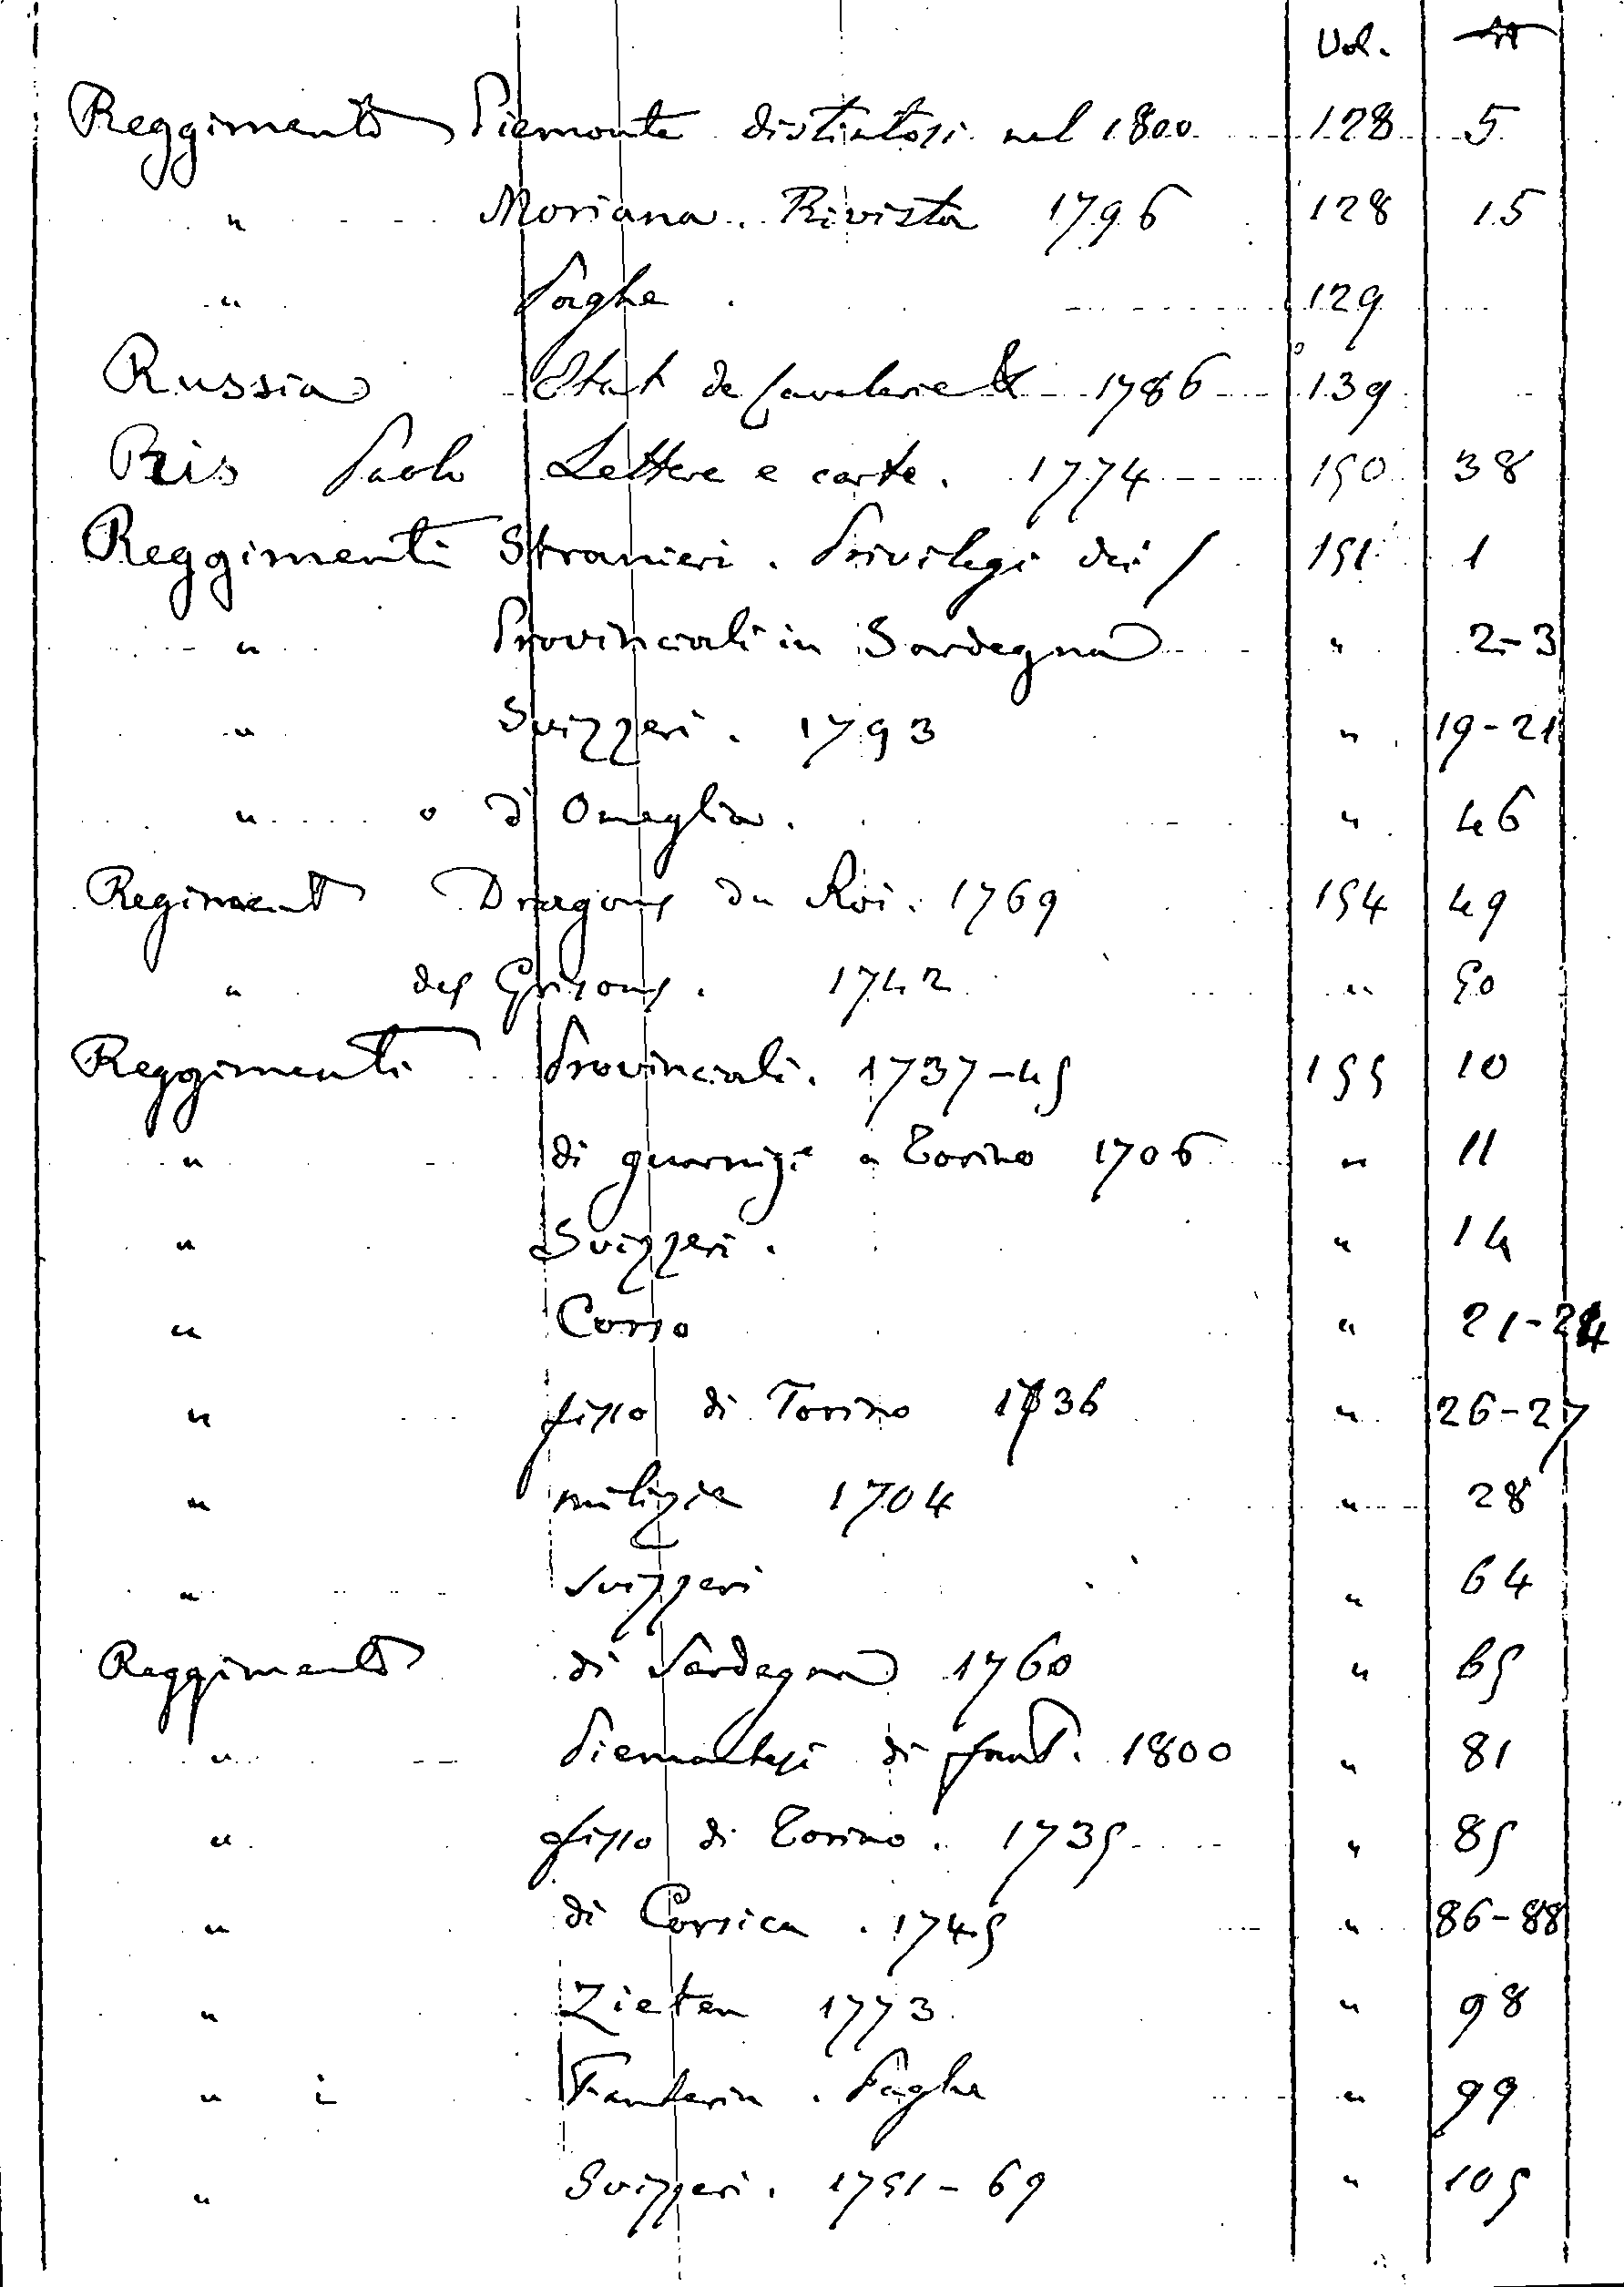 Vol. N
Reggimento Piemonte distintosi nel 1800 128 5
" Moriana. Rivista 1796 128 15
" Paghe. 129
Russia Etat de Cavalerie & 1786 139
Ris Paolo Lettere e carte. 1774 150 38
Reggimenti Stranieri. Privilegi dei 151 1
" Provinciali in Sardegna " 2-3
" Svizzeri. 1793 " 19-21
" o d'Oneglia. " 46
Regiment Dragons du Roi. 1769 154 49
" des Grisons. 1742 " 50
Reggimenti Provinciali. 1737-45 155 10
" di guarnige a Torino 1706 " 11
" Svizzeri. " 14
" Corso " 21-24
" fisso di Torino 1736 " 26-27
" milizie 1704 " 28
" Svizzeri " 64
Reggimento di Sardegna 1760 " 65
" Piemontesi di fant. 1800 " 81
" fisso di Torino. 1735 " 85
" di Corsica. 1745 " 86-88
" Zieten 1773 " 98
" i Fanteria. Paghe " 99
" Svizzeri. 1751-69 " 105